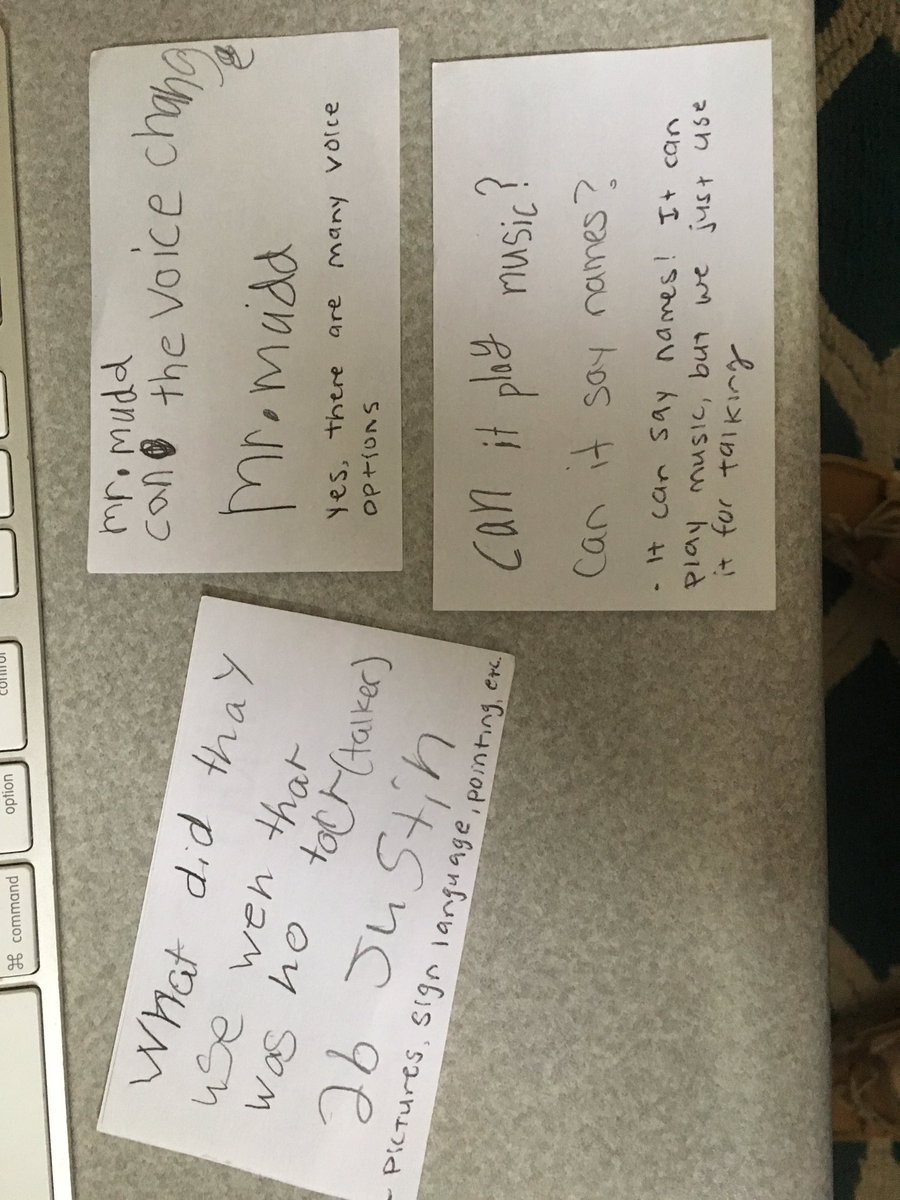 mr. mudd
can the voice change
mr. mudd
Yes, there are many voice
options
can it play music?
can it say names?
- It can say names! It can
play music, but we just use
it for talking
What did thay
use wen thar
was no tocr (talker)
2b Justin
- pictures, sign language, pointing, etc.
control
option
⌘ command